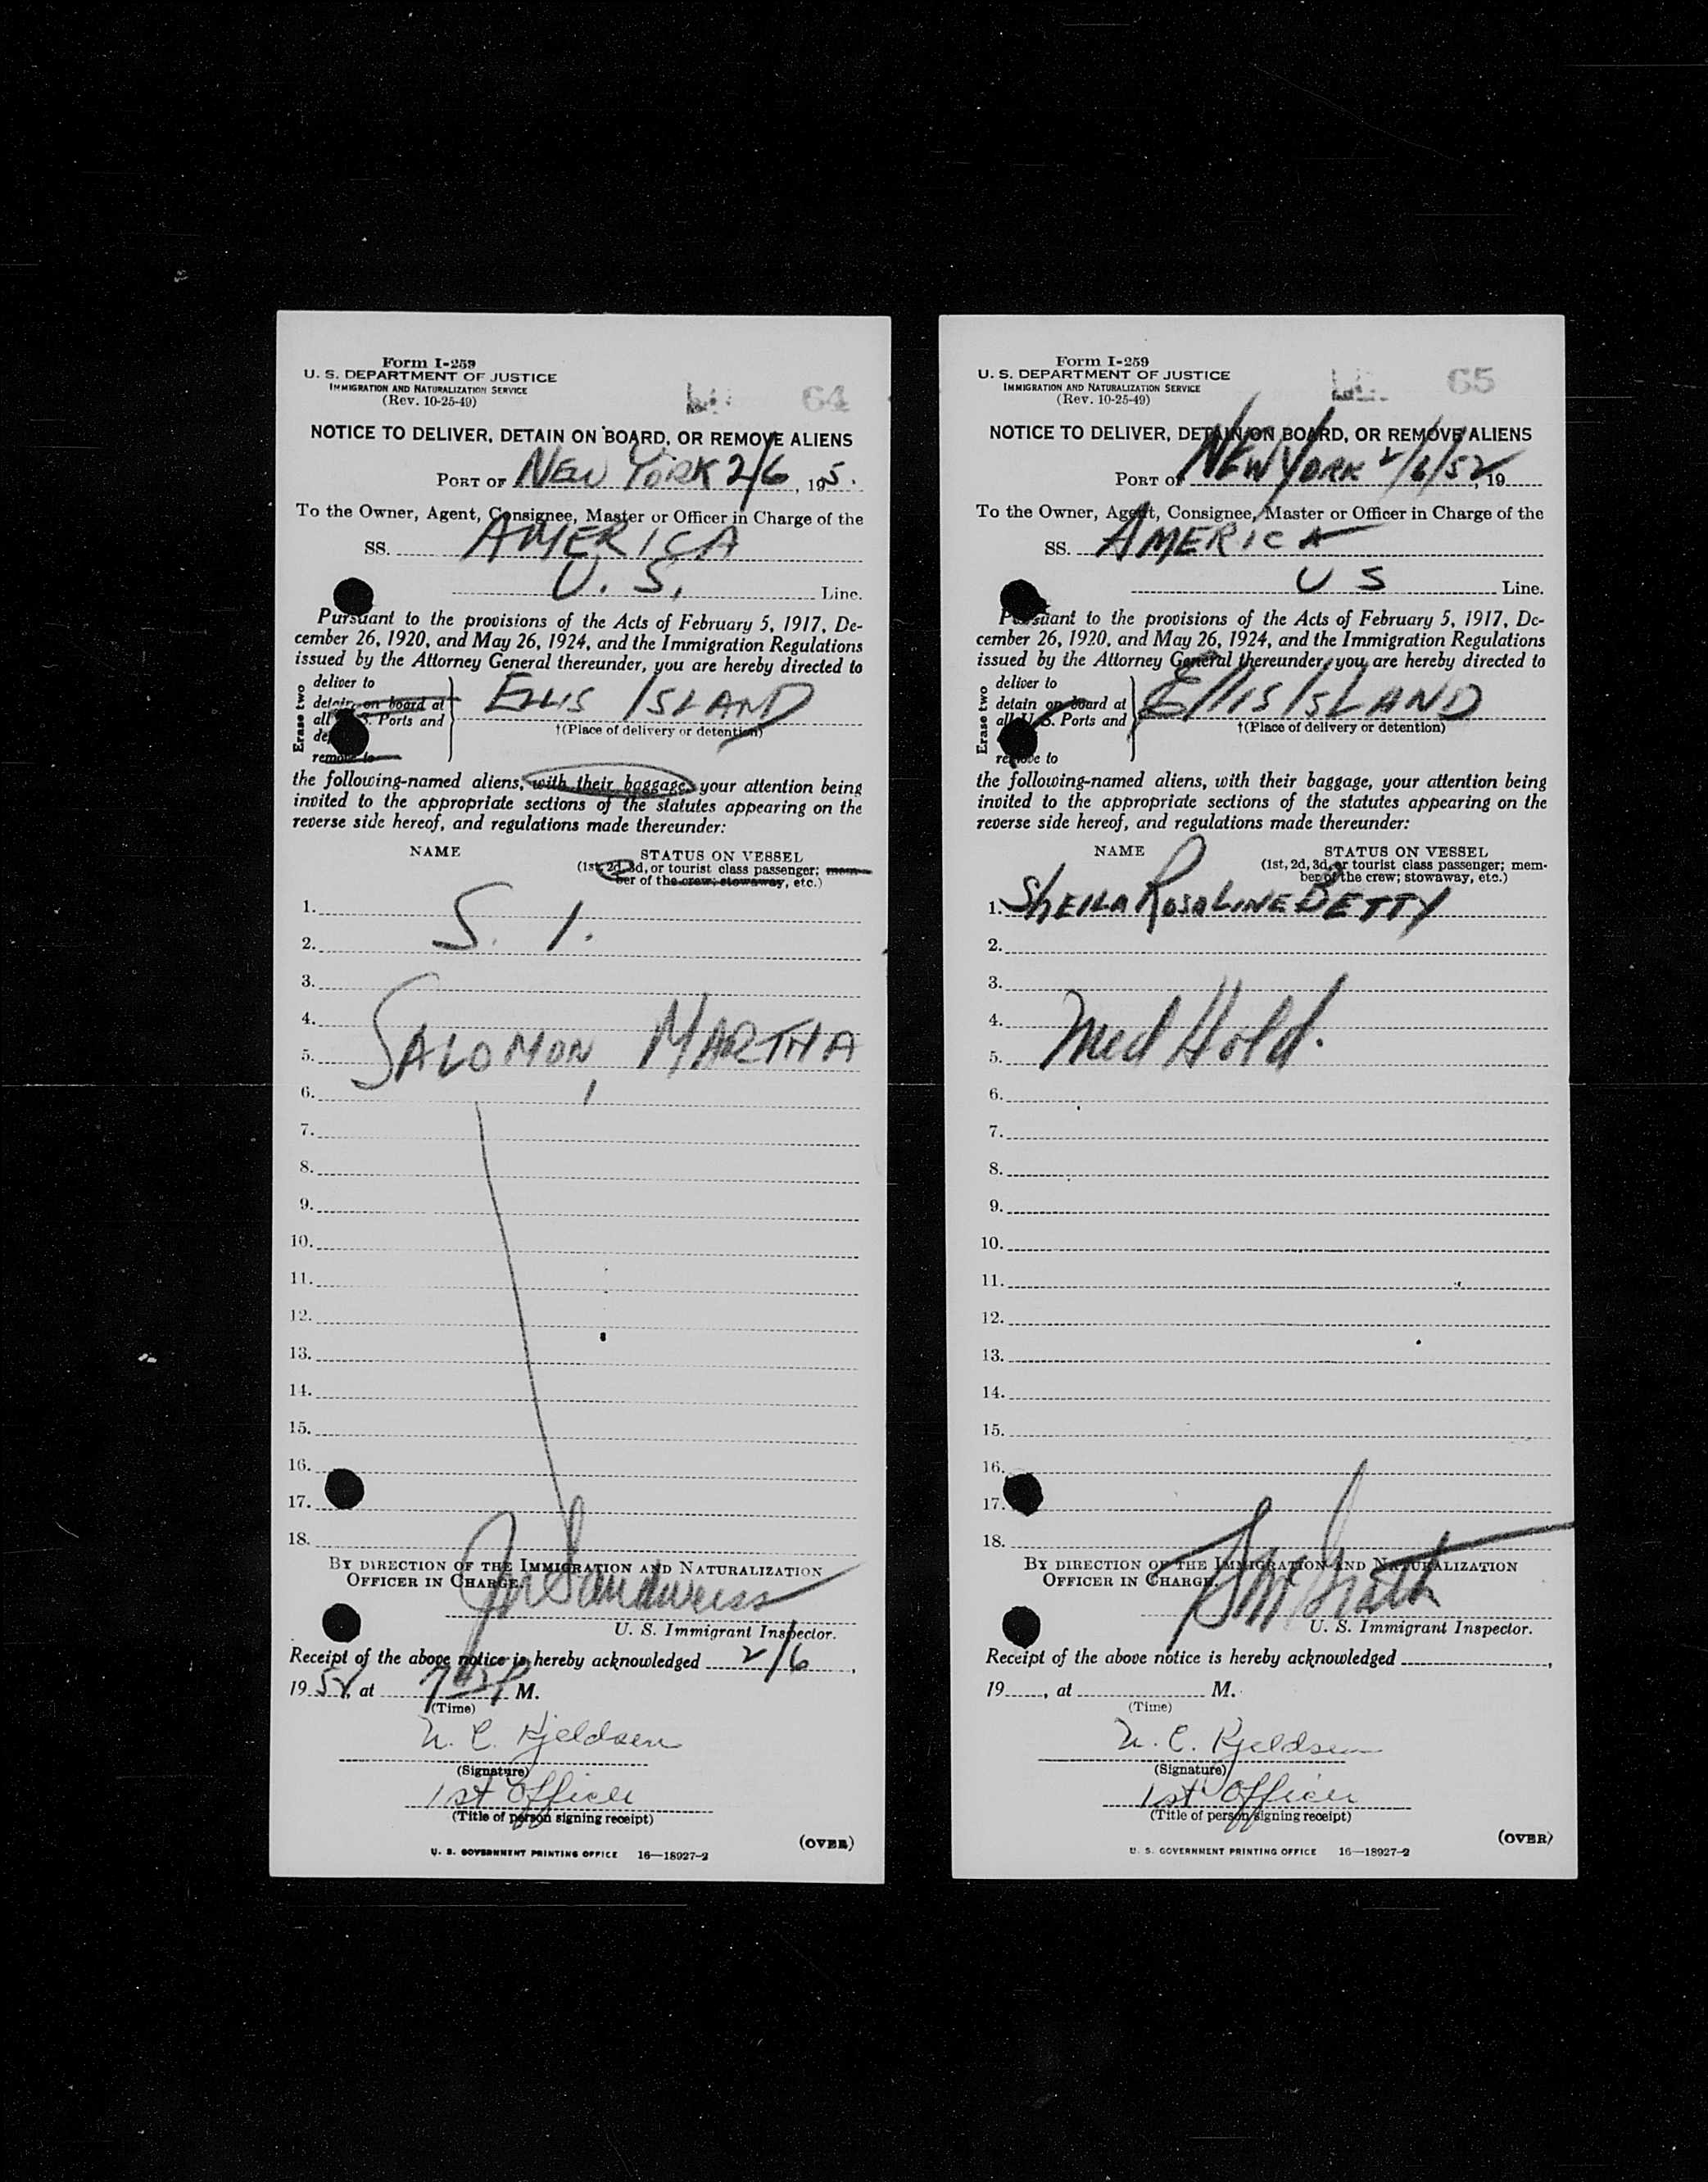 Form I-259
U. S. DEPARTMENT OF JUSTICE
IMMIGRATION AND NATURALIZATION SERVICE
(Rev. 10-25-49)
64
NOTICE TO DELIVER, DETAIN ON BOARD, OR REMOVE ALIENS
PORT OF NEW YORK 2/6, 195.
To the Owner, Agent, Consignee, Master or Officer in Charge of the
SS. AMERICA
U. S. Line.
Pursuant to the provisions of the Acts of February 5, 1917, De-
cember 26, 1920, and May 26, 1924, and the Immigration Regulations
issued by the Attorney General thereunder, you are hereby directed to
Erase two
deliver to
detain on board at
all S. Ports and
remove to
ELLIS ISLAND
†(Place of delivery or detention)
the following-named aliens, with their baggage, your attention being
invited to the appropriate sections of the statutes appearing on the
reverse side hereof, and regulations made thereunder:
NAME STATUS ON VESSEL
(1st, 2d, 3d, or tourist class passenger; mem-
ber of the crew; stowaway, etc.)
1.
2. S. I.
3.
4.
5. SALOMON, MARTHA
6.
7.
8.
9.
10.
11.
12.
13.
14.
15.
16.
17.
18.
BY DIRECTION OF THE IMMIGRATION AND NATURALIZATION
OFFICER IN CHARGE.
Sandweiss
U. S. Immigrant Inspector.
Receipt of the above notice is hereby acknowledged 2/6,
1952, at M.
(Time)
N. C. Kjeldsen
(Signature)
1st Officer
(Title of person signing receipt)
(OVER)
U. S. GOVERNMENT PRINTING OFFICE 16—18927-2
Form I-259
U. S. DEPARTMENT OF JUSTICE
IMMIGRATION AND NATURALIZATION SERVICE
(Rev. 10-25-49)
65
NOTICE TO DELIVER, DETAIN ON BOARD, OR REMOVE ALIENS
PORT OF NEW YORK 2/6/52, 19
To the Owner, Agent, Consignee, Master or Officer in Charge of the
SS. AMERICA
U S Line.
Pursuant to the provisions of the Acts of February 5, 1917, De-
cember 26, 1920, and May 26, 1924, and the Immigration Regulations
issued by the Attorney General thereunder, you are hereby directed to
Erase two
deliver to
detain on board at
all U. S. Ports and
remove to
ELLIS ISLAND
†(Place of delivery or detention)
the following-named aliens, with their baggage, your attention being
invited to the appropriate sections of the statutes appearing on the
reverse side hereof, and regulations made thereunder:
NAME STATUS ON VESSEL
(1st, 2d, 3d, or tourist class passenger; mem-
ber of the crew; stowaway, etc.)
1. SHEILA ROSALINE BETTY
2.
3.
4.
5. Med Hold.
6.
7.
8.
9.
10.
11.
12.
13.
14.
15.
16.
17.
18.
BY DIRECTION OF THE IMMIGRATION AND NATURALIZATION
OFFICER IN CHARGE.
U. S. Immigrant Inspector.
Receipt of the above notice is hereby acknowledged ,
19 , at M.
(Time)
N. C. Kjeldsen
(Signature)
1st Officer
(Title of person signing receipt)
(OVER)
U. S. GOVERNMENT PRINTING OFFICE 16—18927-2